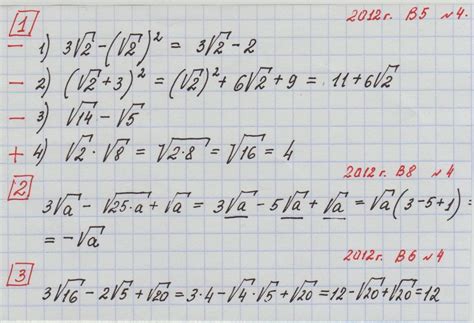 1 2012г. В5 №4.
− 1) 3√2 − (√2)² = 3√2 − 2
− 2) (√2 + 3)² = (√2)² + 6√2 + 9 = 11 + 6√2
− 3) √14 − √5
+ 4) √2 · √8 = √2·8 = √16 = 4
2012г. В8 №4
2 3√a − √25·a + √a = 3√a − 5√a + √a = √a(3−5+1) =
= −√a
2012г. В6 №4
3 3√16 − 2√5 + √20 = 3·4 − √4·√5 + √20 = 12 − √20 + √20 = 12